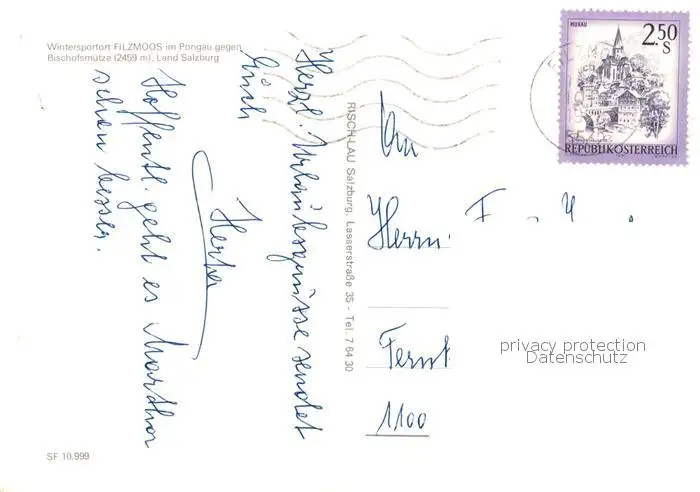 Wintersportort FILZMOOS im Pongau gegen
Bischofsmütze (2459 m), Land Salzburg
Herzl. Urlaubsgrüsse sendet
Euch
Hoffentl. geht es
schon besser.
RISCH-LAU Salzburg, Lasserstraße 35 - Tel. 7 64 30
MURAU
2.50
S
REPUBLIK ÖSTERREICH
An
Herrn
F
1100
privacy protection
Datenschutz
SF 10.999